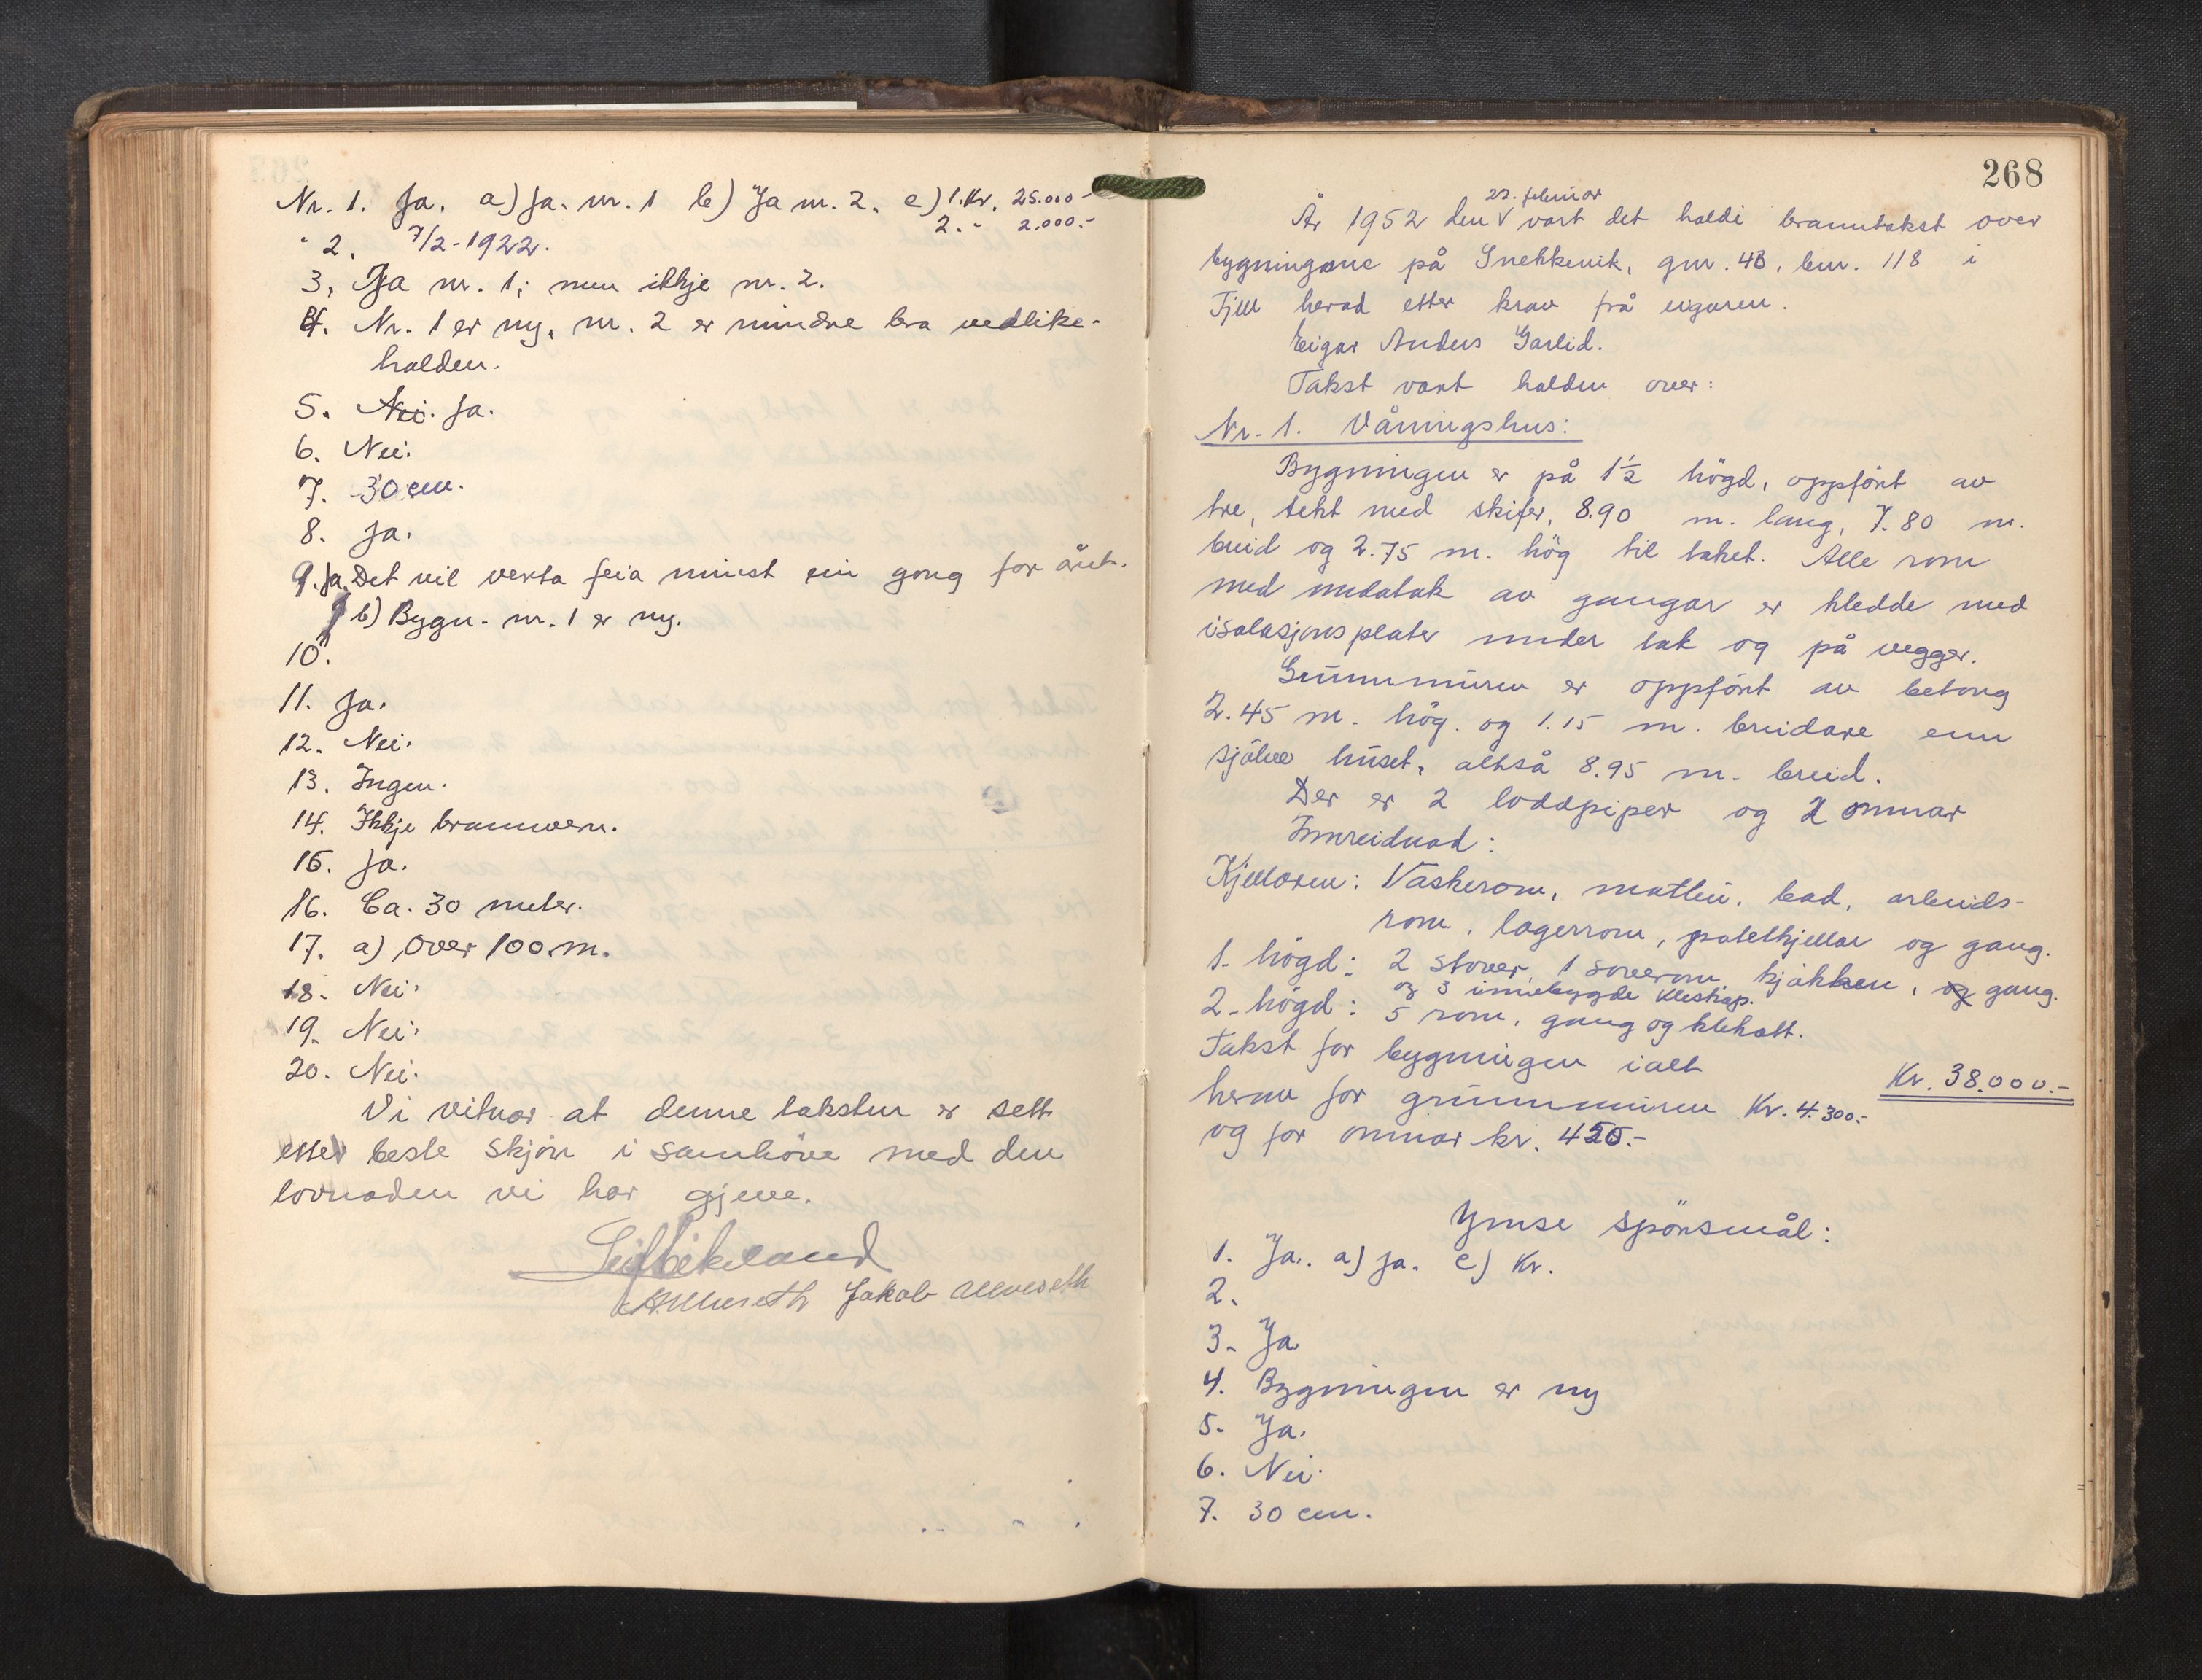 Nr. 1. Ja. a) Ja. nr. 1 b) Ja nr. 2. c) 1. Kr. 25.000-
2. " 2.000.-
" 2. 7/2-1922.
3, Ja nr. 1; men ikkje nr. 2.
4. Nr. 1 er ny, nr. 2 er mindre bra vedlike-
halden.
5. Nei. Ja.
6. Nei.
7. 30 cm.
8. Ja.
9. Ja. Det vil verta feia minst ein gong for året.
b) Bygn. nr. 1 er ny.
10.
11. Ja.
12. Nei.
13. Ingen.
14. Ikkje brannvern.
15. Ja.
16. Ca. 30 meter.
17. a) Over 100 m.
18. Nei.
19. Nei.
20. Nei.
Vi vitnar at denne taksten er sett
etter beste skjön i samhöve med den
lovnaden vi har gjeve.
Jakob
268
År 1952 den 22. februar vart det haldi branntakst over
bygningane på Snekkevik, gnr. 48, bnr. 118 i
Fjell herad etter krav frå eigaren.
Eigar Anders Garlid.
Takst vart halden over:
Nr. 1. Våningshus:
Bygningen er på 1½ högd, oppfört av
tre, tekt med skifer, 8.90 m. lang, 7.80 m.
breid og 2.75 m. hög til taket. Alle rom
med undatak av gangar er kledde med
isolasjonsplater under tak og på vegger.
Grunnmuren er oppfört av betong
2.45 m. hög. og 1.15 m. breidare enn
sjölve huset, altså 8.95 m. breid.
Der er 2 loddpiper og 2 omnar
Innreidnad:
Kjellaren: Vaskerom, matbu, bad, arbeids-
rom, lagerrom, potetkjellar og gang.
1. högd: 2 stover, 1 soverom, kjökken, og gang.
og 3 innebygde kleskap.
2. högd: 5 rom, gang og klekott.
Takst for bygningen ialt Kr. 38.000.-
herav for grunnmuren Kr. 4.300.-
og for omnar kr. 450.-
Ymse spörsmål:
1. Ja. a) Ja. c) Kr.
2.
3. Ja.
4. Bygningen er ny
5. Ja.
6. Nei.
7. 30 cm.